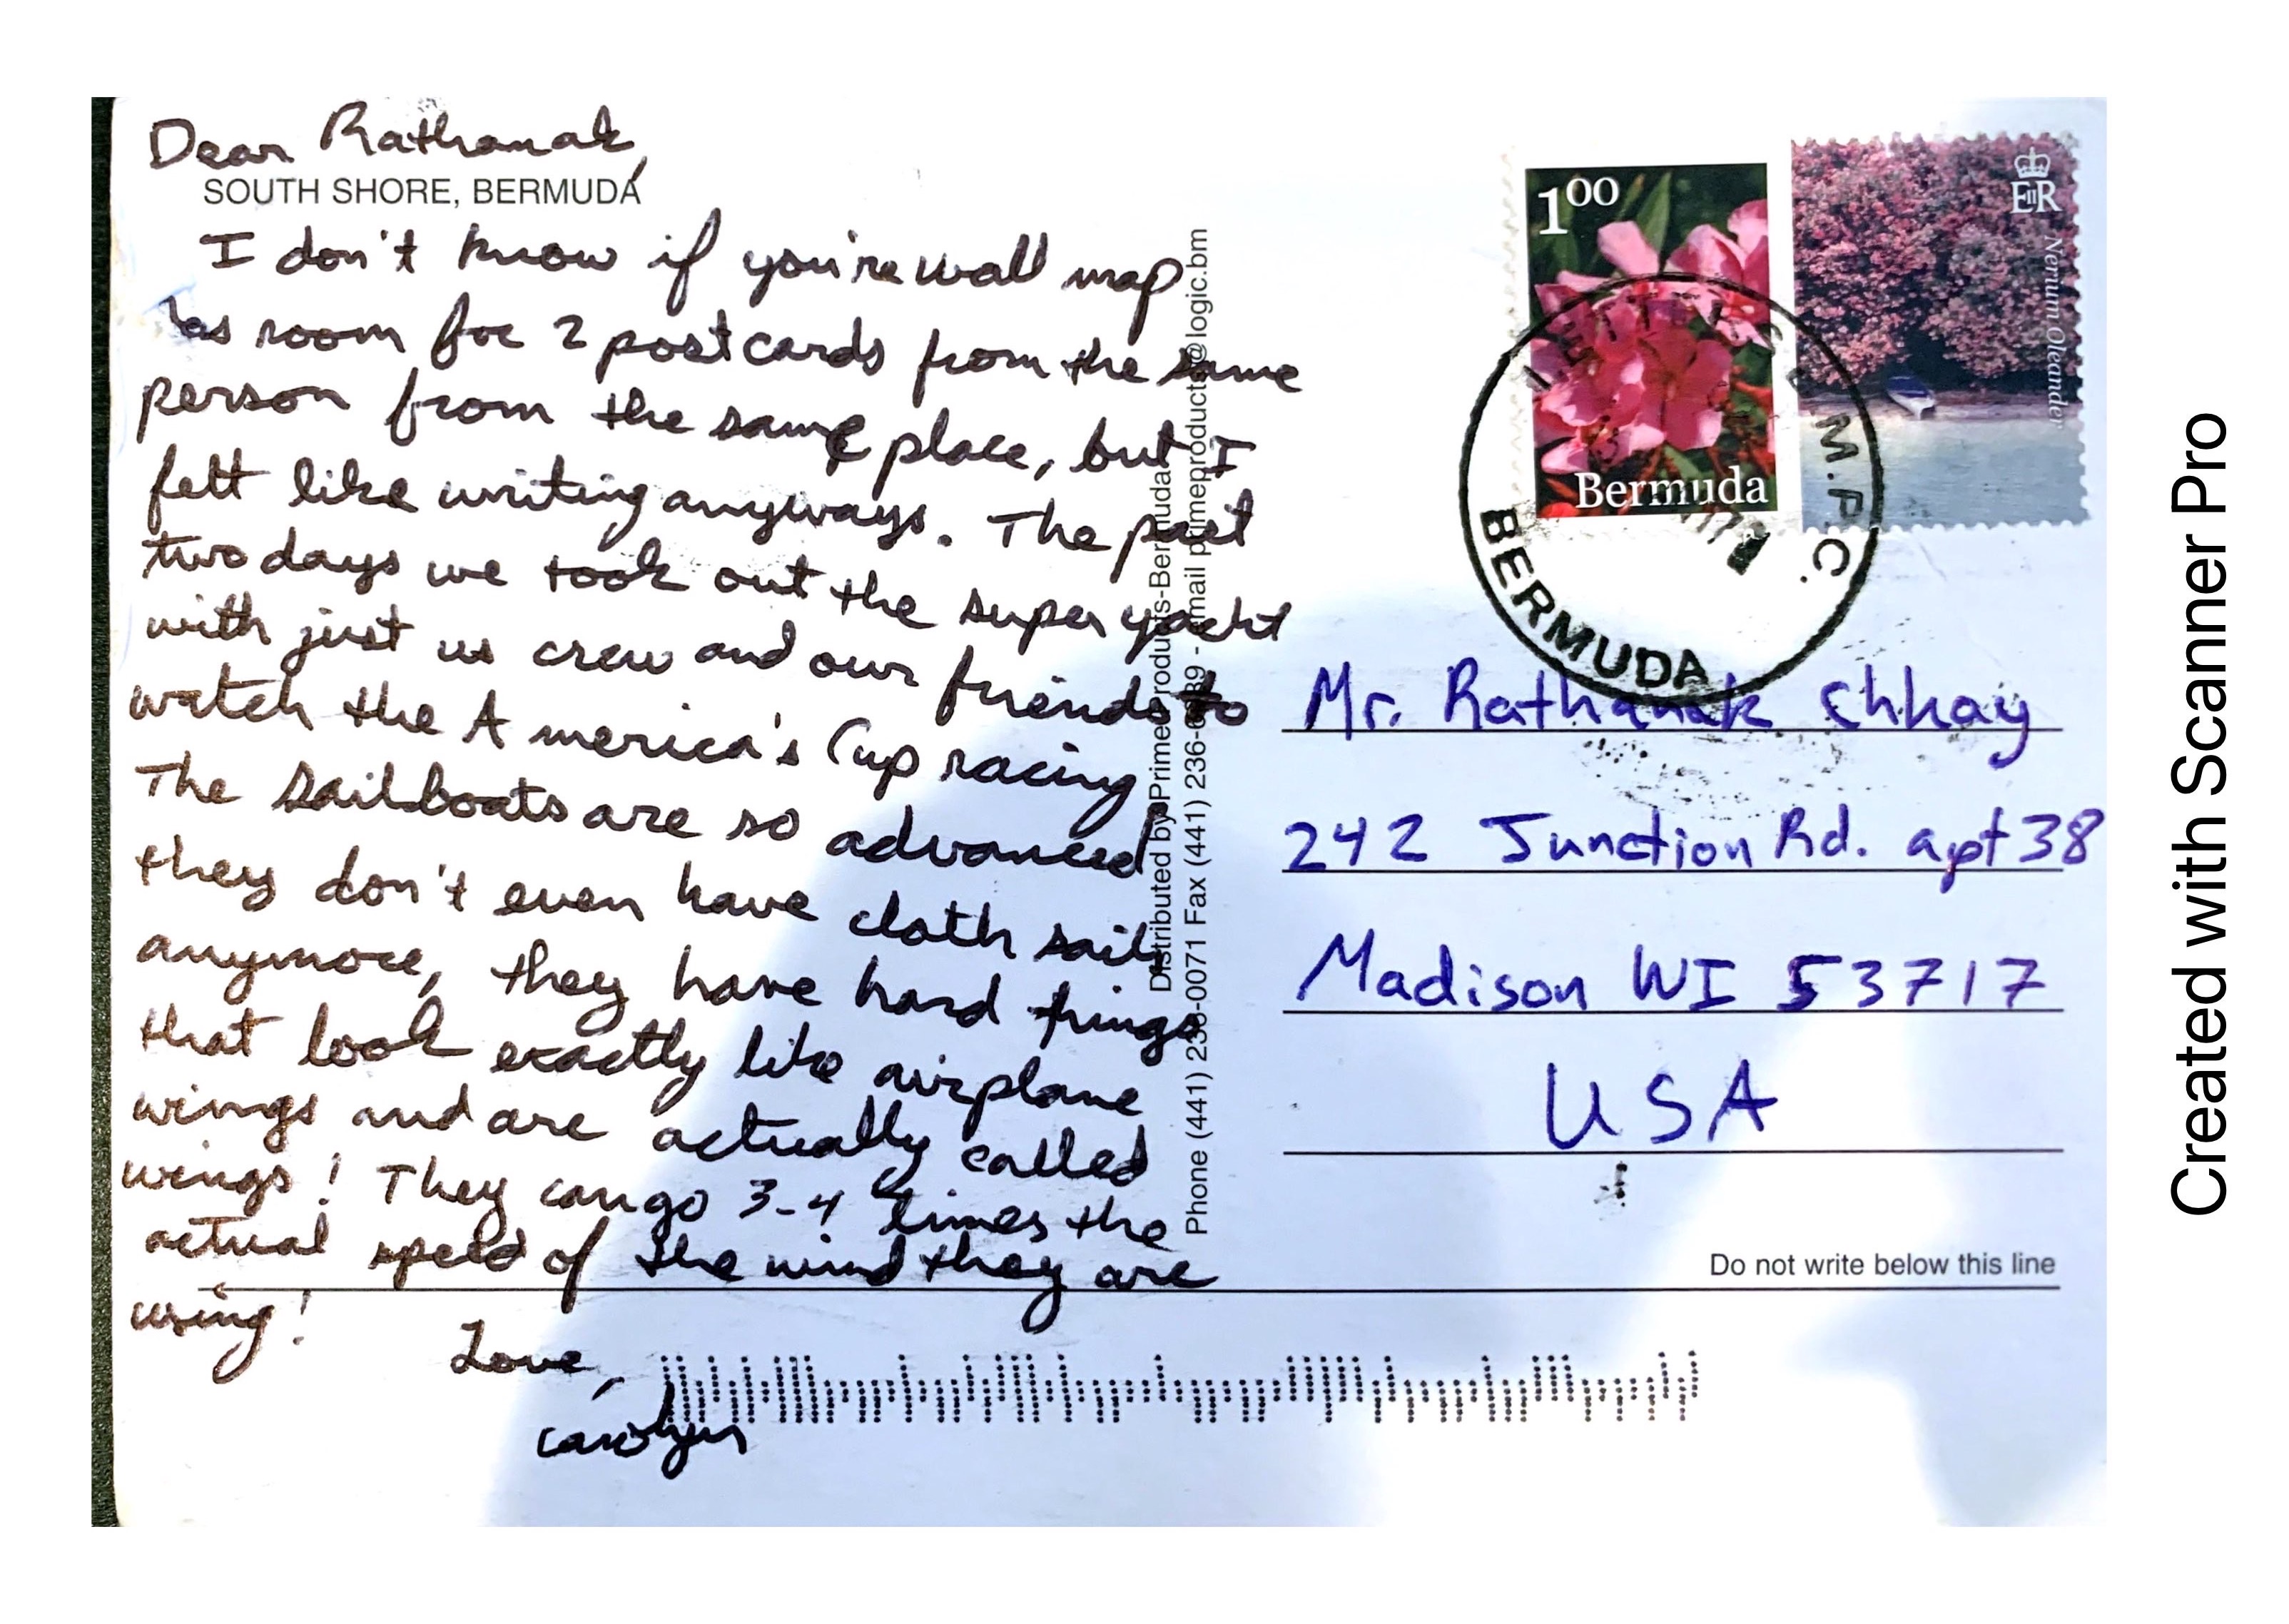 Dear Rathanak,
SOUTH SHORE, BERMUDA
I don't know if you're wall map
has room for 2 postcards from the same
person from the same place, but I
felt like writing anyways. The past
two days we took out the super yacht
with just us crew and our friends to
watch the America's Cup racing
The sailboats are so advanced
they don't even have cloth sails
anymore, they have hard things
that look exactly like airplane
wings and are actually called
wings! They can go 3-4 times the
actual speed of the wind they are
using!
Love,
Carolyn
Distributed by Prime Products-Bermuda
Phone (441) 236-0071 Fax (441) 236- - email primeproducts@logic.bm
100
Bermuda
EIIR
Nerium Oleander
M.P.C.
BERMUDA
Mr. Rathanak Chhay
242 Junction Rd. apt 38
Madison WI 53717
USA
Do not write below this line
Created with Scanner Pro